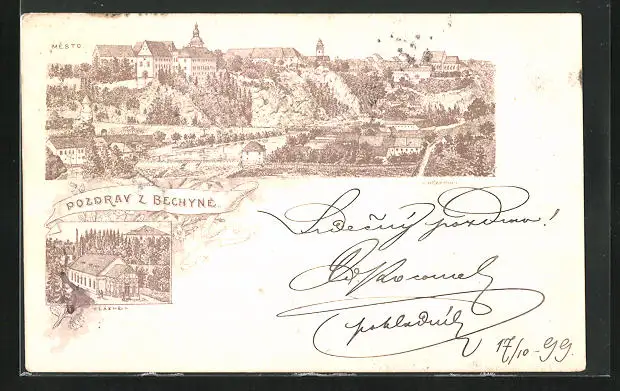 MĚSTO.
POZDRAV Z BECHYNĚ.
LÁZNĚ
Srdečný pozdrav!
pokladník
17/10 - 99.